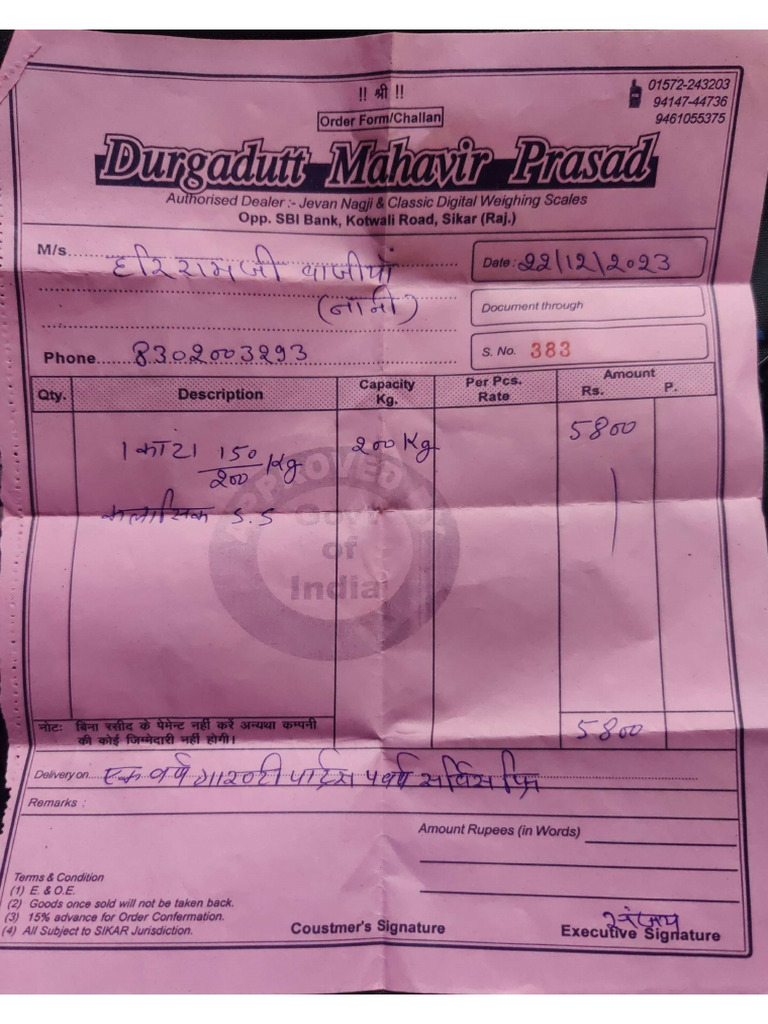 !! श्री !!
Order Form/Challan
01572-243203
94147-44736
9461055375
Durgadutt Mahavir Prasad
Authorised Dealer :- Jevan Nagji & Classic Digital Weighing Scales
Opp. SBI Bank, Kotwali Road, Sikar (Raj.)
M/s. हरिरामजी
Date : 22/12/2023
(नानी)
Document through
Phone 8302003293
S. No. 383
Qty. Description Capacity Kg. Per Pcs. Rate Amount Rs. P.
1 कांटा 150/200 Kg 200 Kg 5800
क्लासिक S.S
APPROVED BY
Govt
of
India
नोटः बिना रसीद के पेमेन्ट नहीं करें अन्यथा कम्पनी
की कोई जिम्मेदारी नहीं होगी।
5800
Delivery on एक वर्ष गारन्टी पार्ट्स ५ वर्ष सर्विस फ्रि
Remarks :
Amount Rupees (in Words)
Terms & Condition
(1) E. & O.E.
(2) Goods once sold will not be taken back.
(3) 15% advance for Order Confermation.
(4) All Subject to SIKAR Jurisdiction.
Coustmer's Signature
Executive Signature